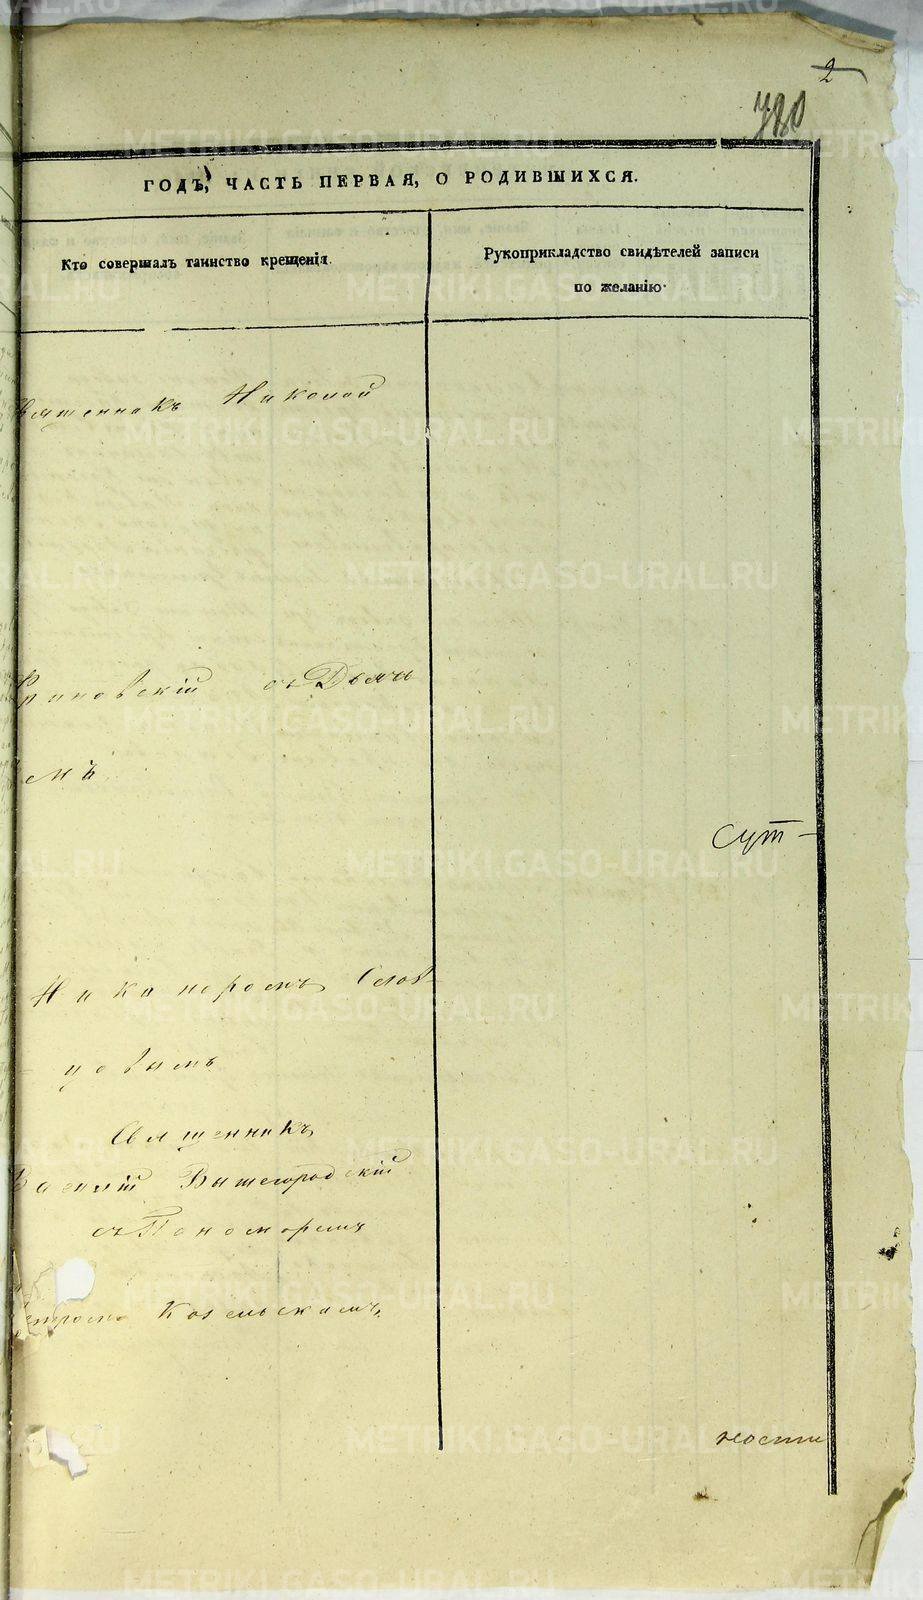 2
780
ГОДЪ, ЧАСТЬ ПЕРВАЯ, О РОДИВШИХСЯ.
Кто совершалъ таинство крещенія.
Рукоприкладство свидѣтелей записи
по желанію.
вященникъ Николай
риновскій съ Дьяч
емъ
Сут-
Никаноромъ Слов-
цовымъ
Священникъ
Вышегородскій
съ Пономоремъ
етромъ Козельскимъ
ности
METRIKI.GASO-URAL.RU